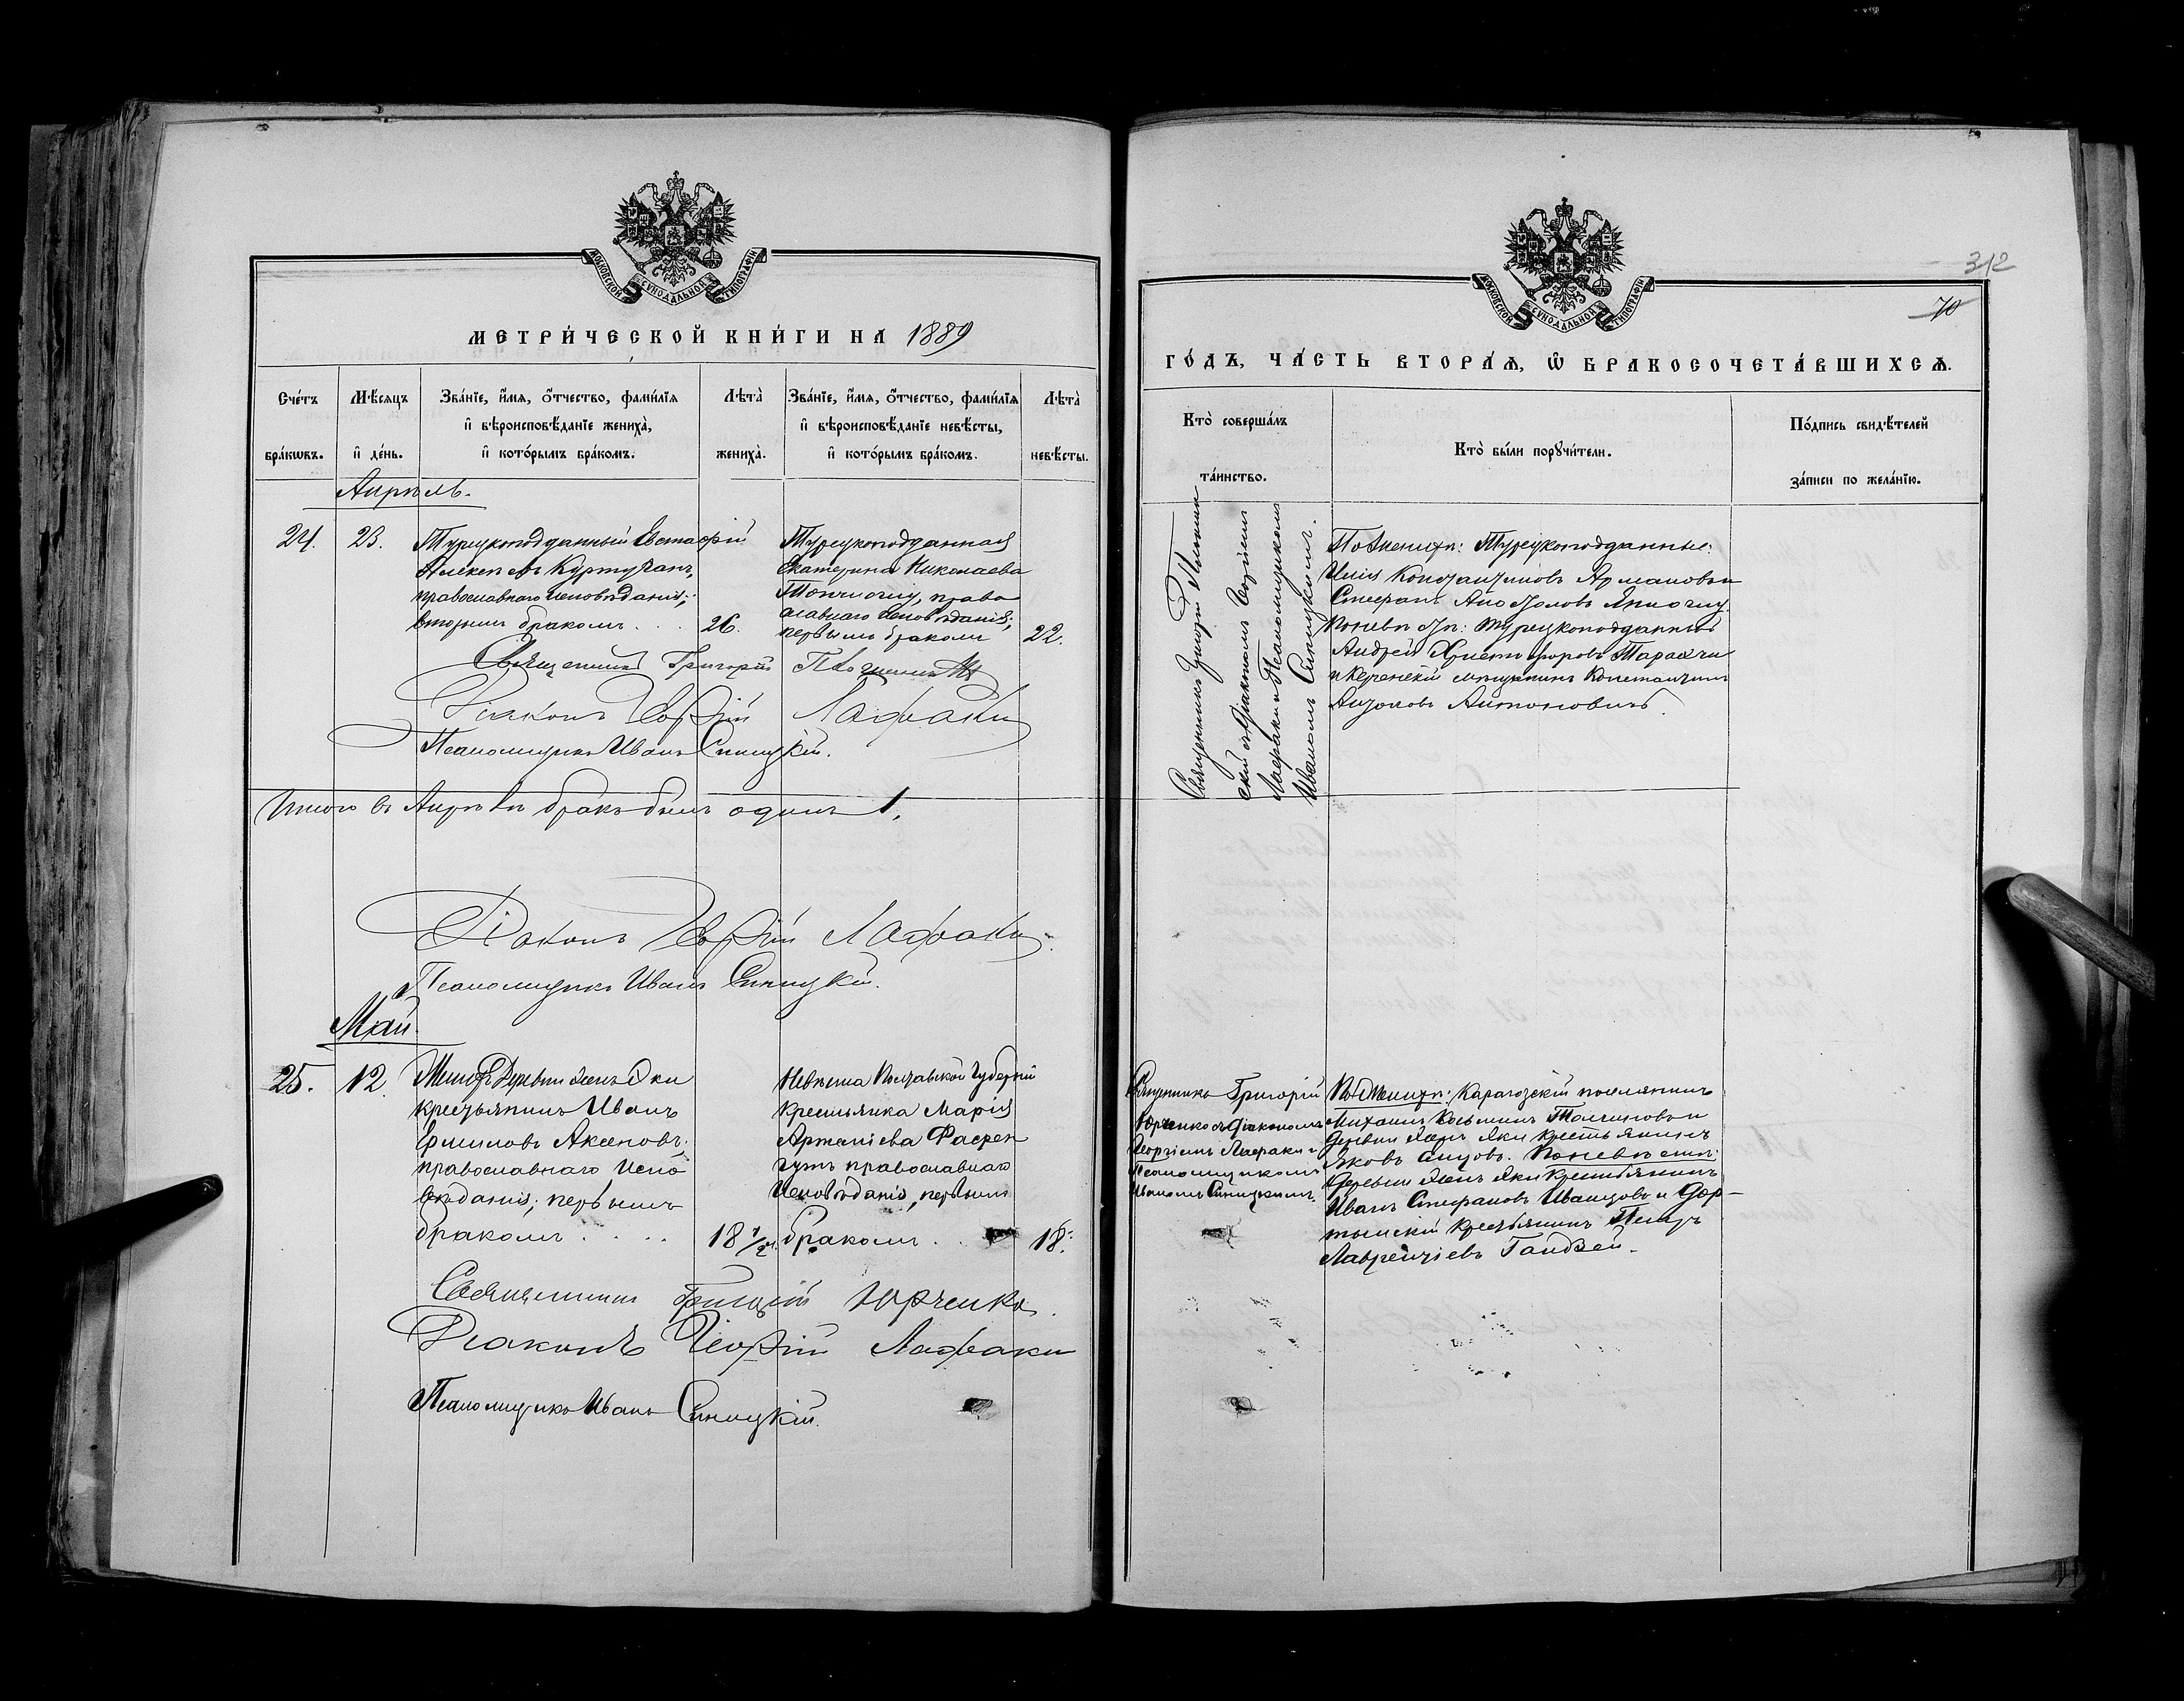 МОСКОВСКОЙ СѴНОДАЛЬНОЙ ТИПОГРАФІИ
МЕТРИ́ЧЕСКОЙ КНИ́ГИ НА 1889
Сче́тъ бра́кѡвъ.
Мѣ́сяцъ и҆ де́нь.
Зва́нїе, и҆́мѧ, ѻ҆́тчество, фами́лїѧ
и҆ вѣроисповѣ́данїе жениха̀,
и҆ кото́рымъ бра́комъ.
Лѣта̀ жениха̀.
Зва́нїе, и҆́мѧ, ѻ҆́тчество, фами́лїѧ
и҆ вѣроисповѣ́данїе невѣ́сты,
и҆ кото́рымъ бра́комъ.
Лѣта̀ невѣ́сты.
Апрѣль.
24.
23.
Турецкоподданный Евстафій
Алексѣевъ
православнаго исповѣданія;
вторымъ бракомъ . . .
26.
Турецкоподданная
Екатерина Николаева
право
славнаго исповѣданія;
первымъ бракомъ
22.
Священникъ Григорій
Діаконъ Георгій Лафаки
Псаломщикъ Иванъ Синицкій.
Итого въ Апрѣлѣ бракъ былъ одинъ 1.
Діаконъ Георгій Лафаки.
Псаломщикъ Иванъ Синицкій.
Май.
25.
12.
Деревни Яки
крестьянинъ Иванъ
Ефимовъ Аксеновъ;
православнаго испо
вѣданія; первымъ
бракомъ . . . .
18 1/2
Невѣста Полтавской Губерніи
крестьянка Марія
православнаго
исповѣданія, первымъ
бракомъ . .
18.
Священникъ Григорій Юрченко.
Діаконъ Георгій Лафаки
Псаломщикъ Иванъ Синицкій.
МОСКОВСКОЙ СѴНОДАЛЬНОЙ ТИПОГРАФІИ
312
70
ГО́ДЪ, ЧА́СТЬ ВТОРА́Ѧ, Ѽ БРАКОСОЧЕТА́ВШИХСѦ.
Кто̀ соверша́лъ
та́инство.
Кто̀ бы́ли порꙋчи́тели.
По́дпись свидѣ́телей
за́писи по жела́нїю.
Священникъ Григорій
скій съ Діакономъ Георгіемъ
Лафаки и Псаломщикомъ
Иваномъ Синицкимъ.
По Женихѣ: Турецкоподданные:
Илія Константиновъ
Стефанъ
По невѣстѣ: Турецкоподданный
Андрей Христофоровъ
и Керченскій мѣщанинъ Константинъ
Антоновичъ.
Священникъ Григорій
Юрченко съ Діакономъ
Георгіемъ Лафаки и
Псаломщикомъ
Иваномъ Синицкимъ.
По Женихѣ: Карагозскій поселянинъ
Михаилъ Косьминъ и
деревни Яки крестьянинъ
Яковъ По невѣстѣ:
деревни Яки крестьянинъ
Иванъ Стефановъ Иванцовъ и
крестьянинъ Петръ
Лаврентіевъ